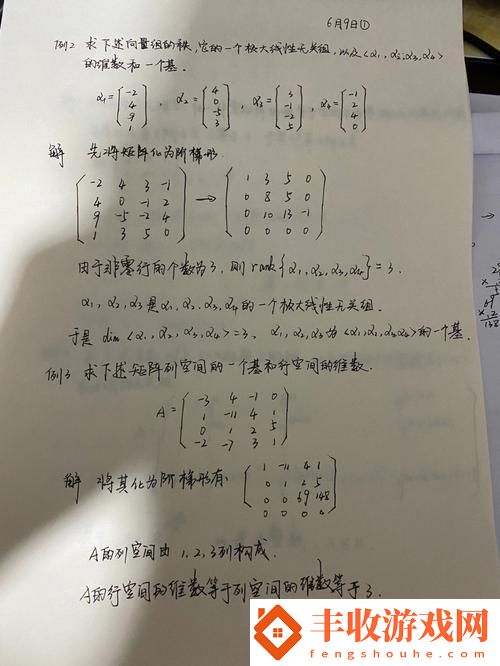 6月9日①
例2 求下述向量组的秩,它的一个极大线性无关组,以及<α₁,α₂,α₃,α₄>
的维数和一个基.
α₁=(-2 4 9 1), α₂=(4 0 -5 3), α₃=(3 -1 -2 5), α₄=(-1 2 4 0)
解 先将矩阵化为阶梯形.
(-2 4 3 -1 → (1 3 5 0
4 0 -1 2 0 8 5 0
9 -5 -2 4 0 10 13 -1
1 3 5 0) 0 0 0 0)
由于非零行的个数为3,则rank{α₁,α₂,α₃,α₄}=3.
α₁,α₂,α₃是α₁,α₂,α₃,α₄的一个极大线性无关组.
于是 dim<α₁,α₂,α₃,α₄>=3, α₁,α₂,α₃为<α₁,α₂,α₃,α₄>的一个基.
例3 求下述矩阵列空间的一个基和行空间的维数.
A=(-3 4 -1 0
1 -11 4 1
0 1 2 5
-2 -7 3 1)
解 将其化为阶梯形有 (1 -11 4 1
0 1 2 5
0 0 69 148
0 0 0 0)
A的列空间由1,2,3列构成.
A的行空间的维数等于列空间的维数等于3.
丰收游戏网
fengshouhe.com